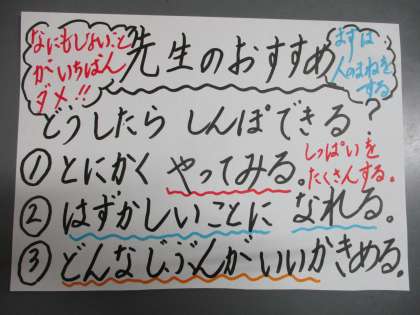 なにもしないこと
がいちばん
ダメ!!
先生のおすすめ
まずは
人のまねを
する
どうしたら しんぽできる?
① とにかく やってみる。
しっぱいを
たくさんする。
② はずかしいことに なれる。
③ どんなじぶんがいいかきめる。